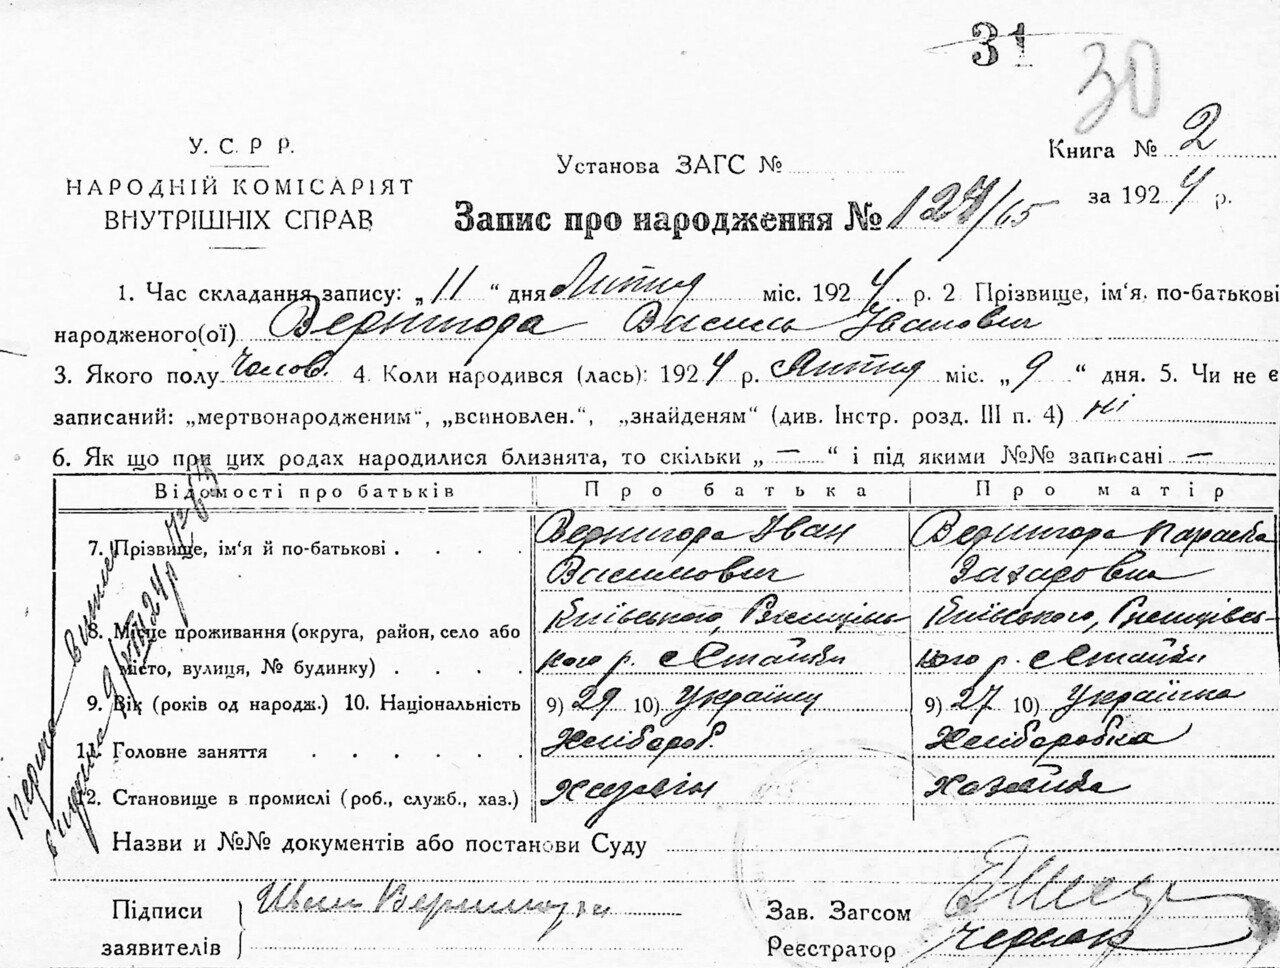 31
30
У. С. Р Р.
НАРОДНІЙ КОМІСАРІЯТ
ВНУТРІШНІХ СПРАВ
Установа ЗАГС №
Книга № 2
за 1924 р.
Запис про народження № 127/65
1. Час складання запису: „11“ дня Лютня міс. 1924 р. 2 Прізвище, ім‘я, по-батькові
народженого(ої) Вернигора Василь Іванович
3. Якого полу Чолов. 4. Коли народився (лась): 1924 р. Лютня міс. „9“ дня. 5. Чи не є
записаний: „мертвонародженим“, „всиновлен.“, „знайденям“ (див. Інстр. розд. III п. 4) ні
6. Як що при цих родах народилися близнята, то скільки „—“ і під якими №№ записані —
Відомості про батьків Про батька Про матір
7. Прізвище, ім‘я й по-батькові Вернигора Іван Вернигора Параска
Василович Захаровна
8. Місце проживання (округа, район, село або Київського, Ржищівсь Київського, Ржищівсь-
місто, вулиця, № будинку) кого р. с Стайки кого р. с Стайки
9. Вік (років од народж.) 10. Національність 9) 29 10) Українец 9) 27 10) Українка
11. Головне заняття Хлібороб. Хліборобка
12. Становище в промислі (роб., служб., хаз.) Хазяїн Хазяйка
Назви и №№ документів або постанови Суду
Підписи
заявителів
Иван Вернигора
Зав. Загсом
Реєстратор
Перша випись
видана